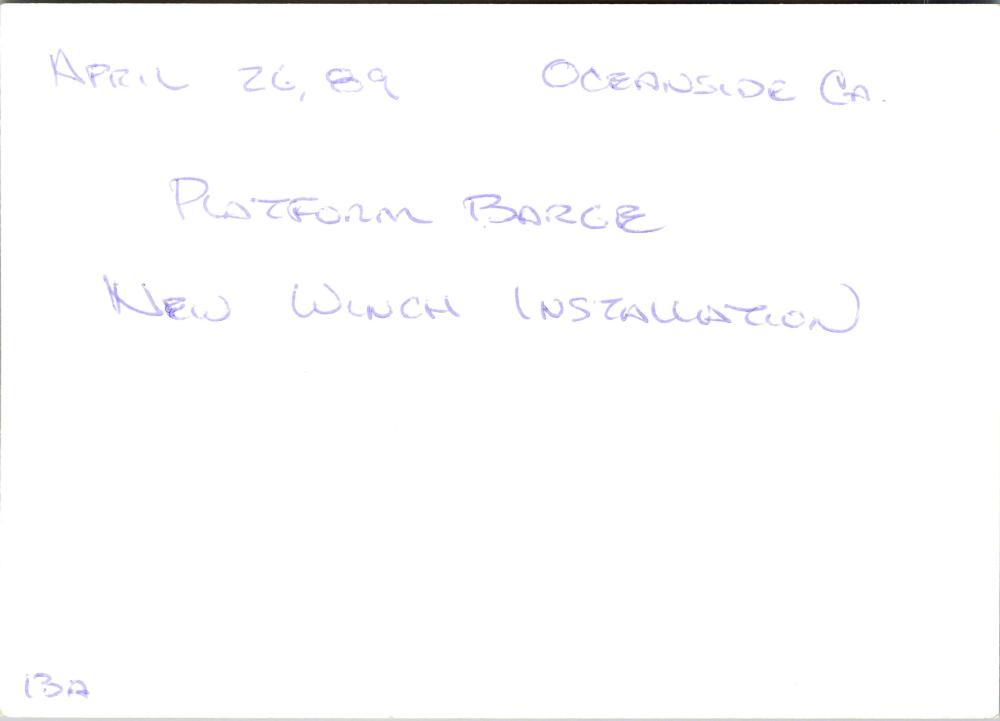 APRIL 26, 89 OCEANSIDE CA.
PLATFORM BARGE
NEW WINCH INSTALLATION
13A